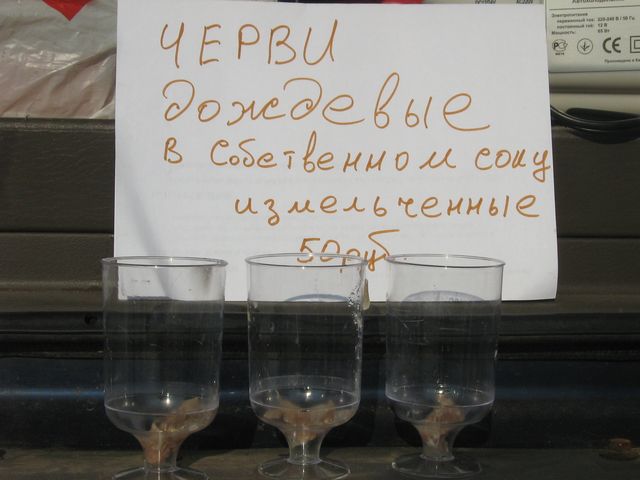 ЧЕРВИ
дождевые
в собственном соку
измельченные
50 руб
Электропитание
переменный ток: 220-240 В / 50 Гц
постоянный ток: 12 В
Мощность: 65 Вт